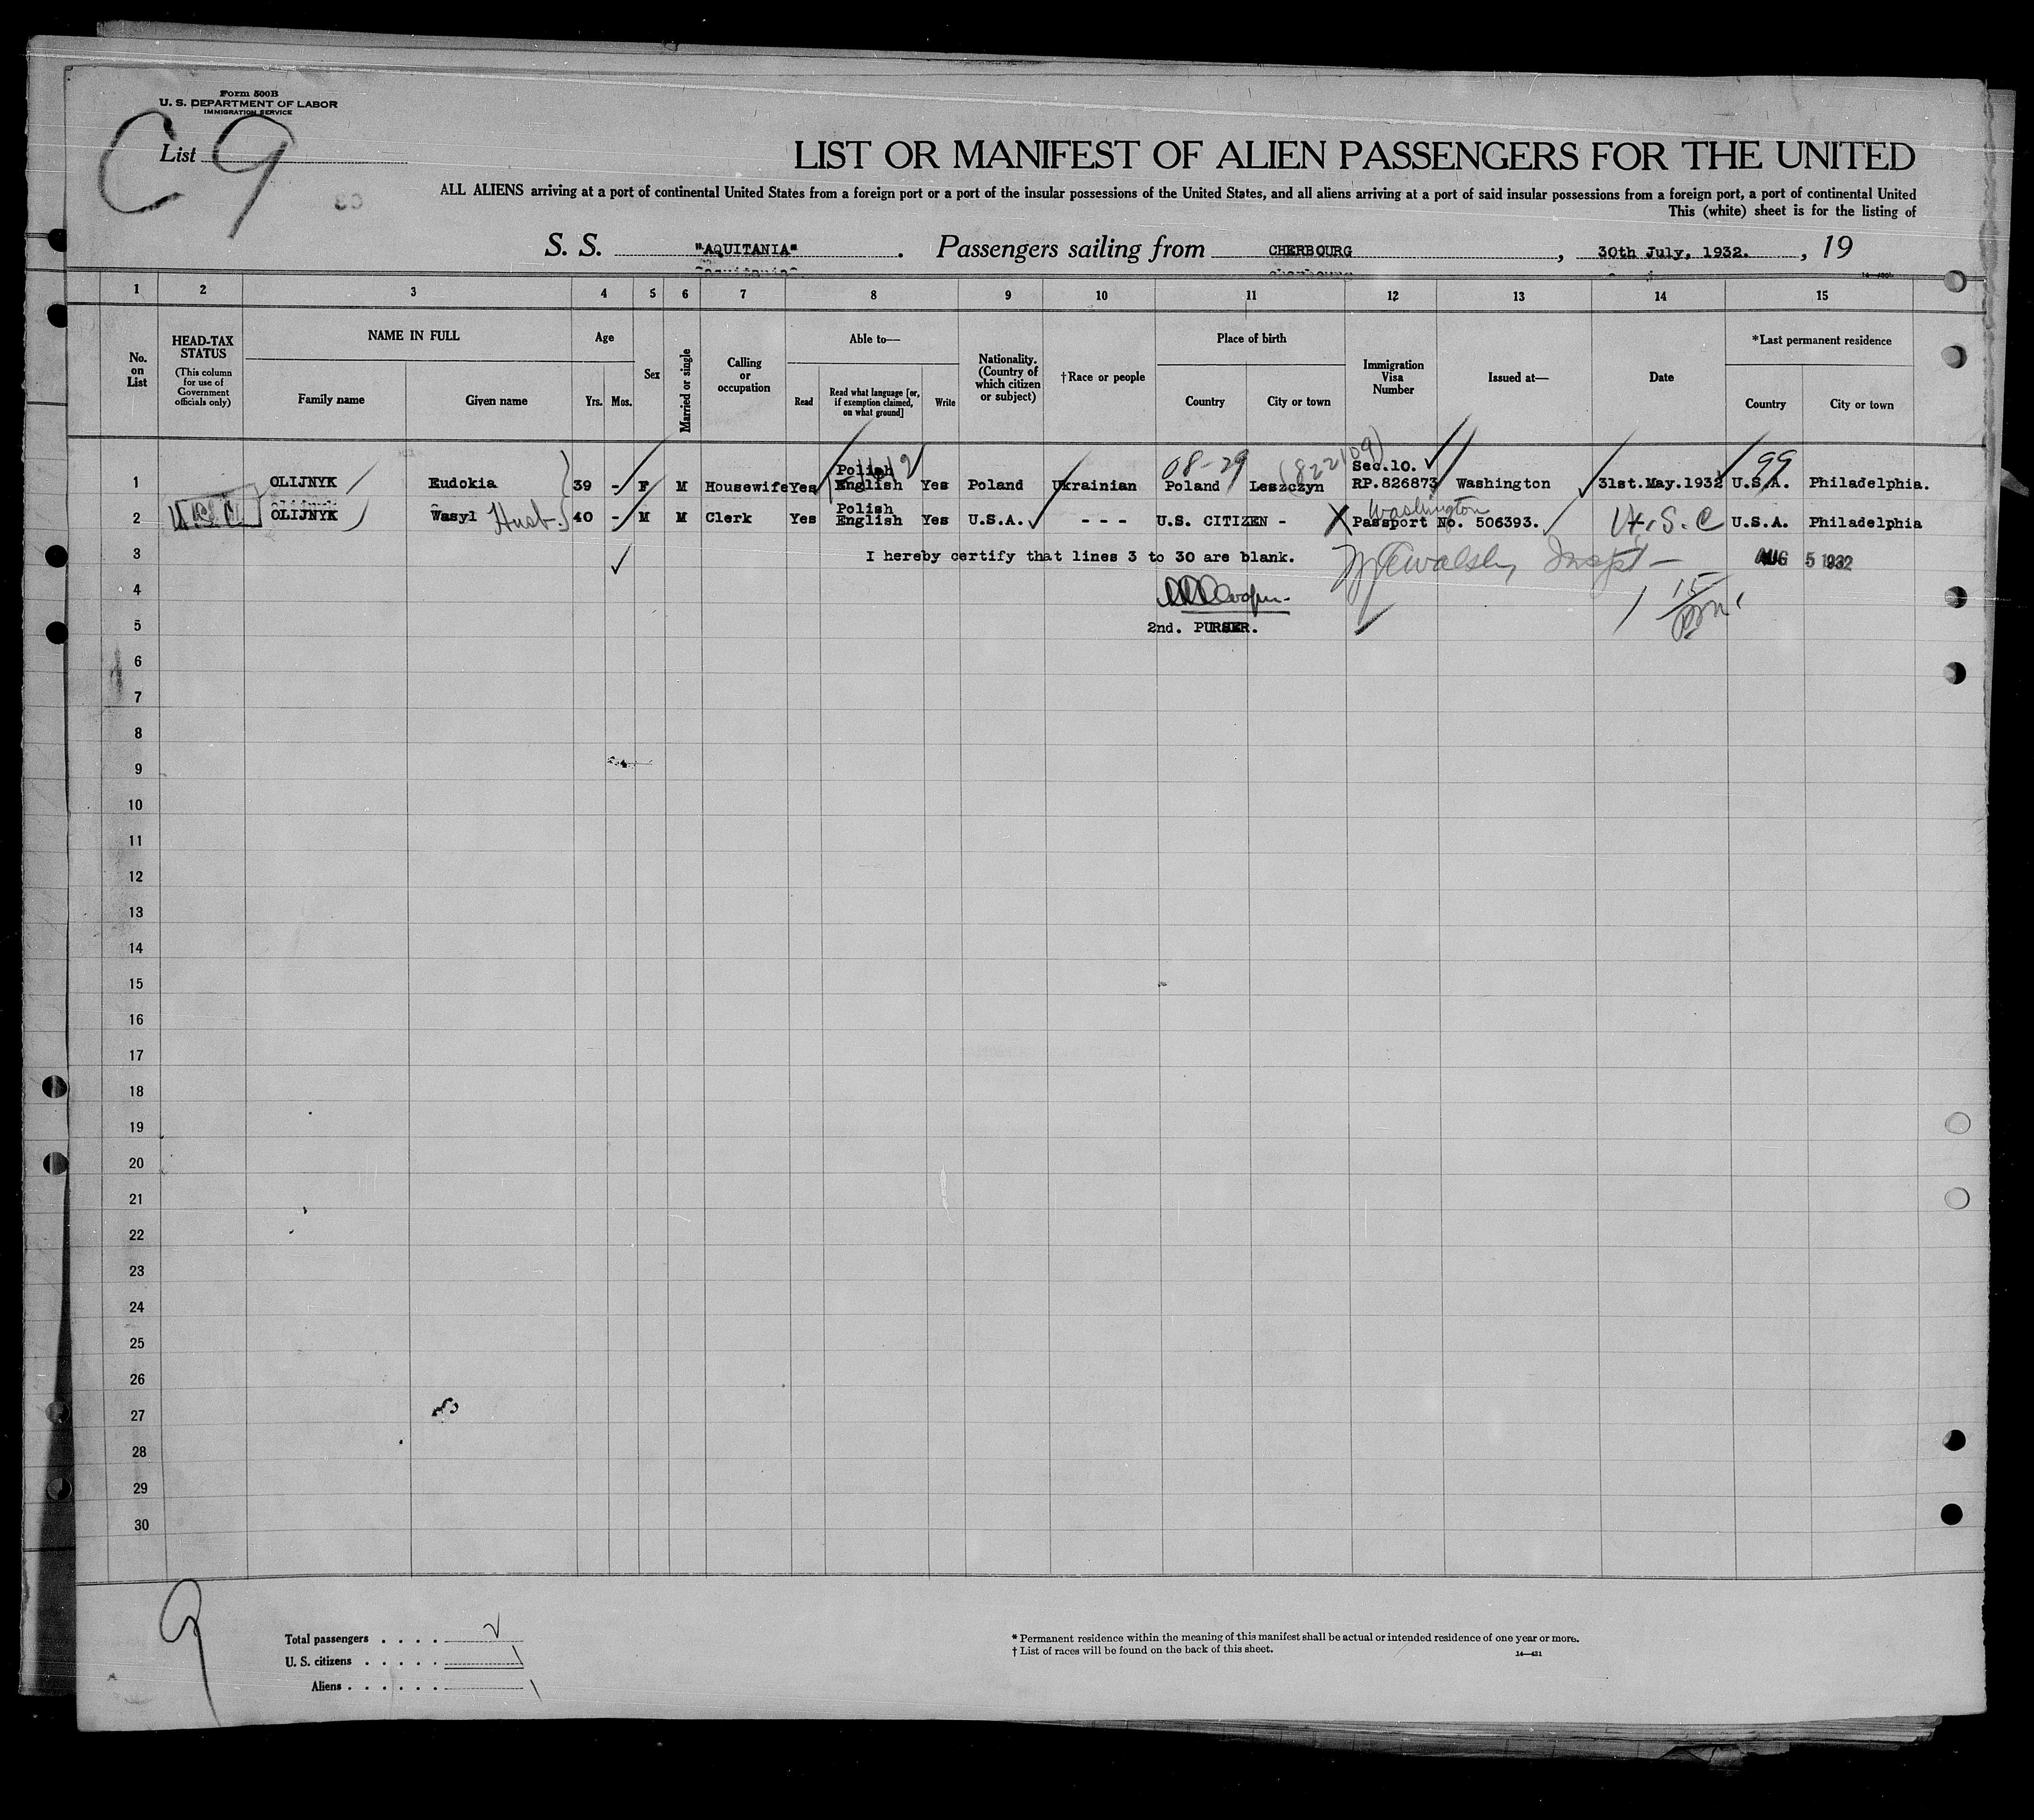 Form 500B
U. S. DEPARTMENT OF LABOR
IMMIGRATION SERVICE
List C 9
LIST OR MANIFEST OF ALIEN PASSENGERS FOR THE UNITED
ALL ALIENS arriving at a port of continental United States from a foreign port or a port of the insular possessions of the United States, and all aliens arriving at a port of said insular possessions from a foreign port, a port of continental United
This (white) sheet is for the listing of
S. S. "AQUITANIA". Passengers sailing from CHERBOURG, 30th July, 1932., 19
1 2 3 4 5 6 7 8 9 10 11 12 13 14 15
No. on List
HEAD-TAX STATUS
(This column for use of Government officials only)
NAME IN FULL
Family name Given name
Age
Yrs. Mos.
Sex
Married or single
Calling or occupation
Able to—
Read Read what language [or, if exemption claimed, on what ground] Write
Nationality. (Country of which citizen or subject)
†Race or people
Place of birth
Country City or town
Immigration Visa Number
Issued at—
Date
*Last permanent residence
Country City or town
08-29 (822109) 99
1 OLIJNYK Eudokia 39 - F M Housewife Yes Polish English Yes Poland Ukrainian Poland Leszczyn Sec.10. RP.826873 Washington 31st.May.1932 U.S.A. Philadelphia.
Washington
2 OLIJNYK Wasyl Husb. 40 - M M Clerk Yes Polish English Yes U.S.A. - - - U.S. CITIZEN - Passport No. 506393. U.S.C U.S.A. Philadelphia
3 I hereby certify that lines 3 to 30 are blank. Walsh, Inspt - AUG 5 1932
4
5 2nd. PURSER.
6
7
8
9
10
11
12
13
14
15
16
17
18
19
20
21
22
23
24
25
26
27
28
29
30
9
Total passengers . . . . 2
U. S. citizens . . . . . 1
Aliens . . . . . . 1
* Permanent residence within the meaning of this manifest shall be actual or intended residence of one year or more.
† List of races will be found on the back of this sheet.
14—431